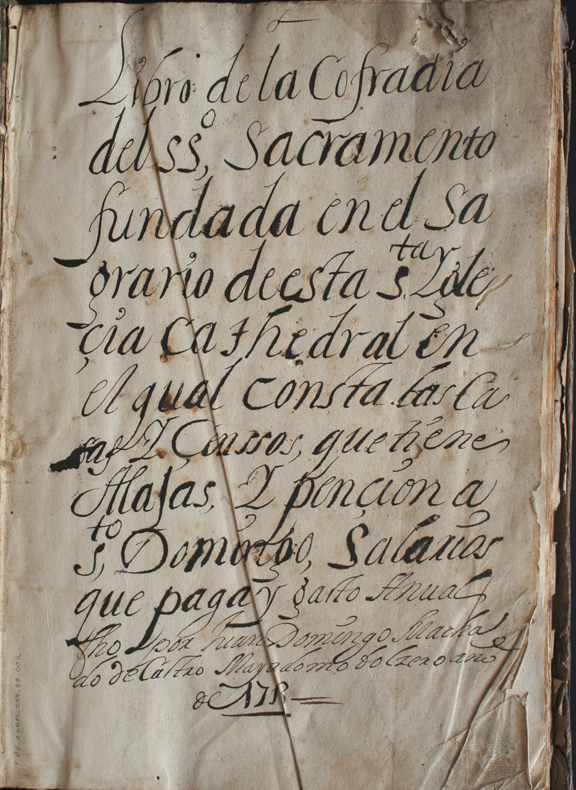 Libro de la Cofradia
del SSº, Sacramento
fundada en el Sa
grario de esta S.ta Igle
çia Cathedral en
el qual consta las Ca
sas Y Censsos, que tiene
Alajas, Y pençion a
S.to Domingo, Salarios
que paga y gasto Anual
fho por Juan Domingo Macha
do de Castro Mayordomo año
de